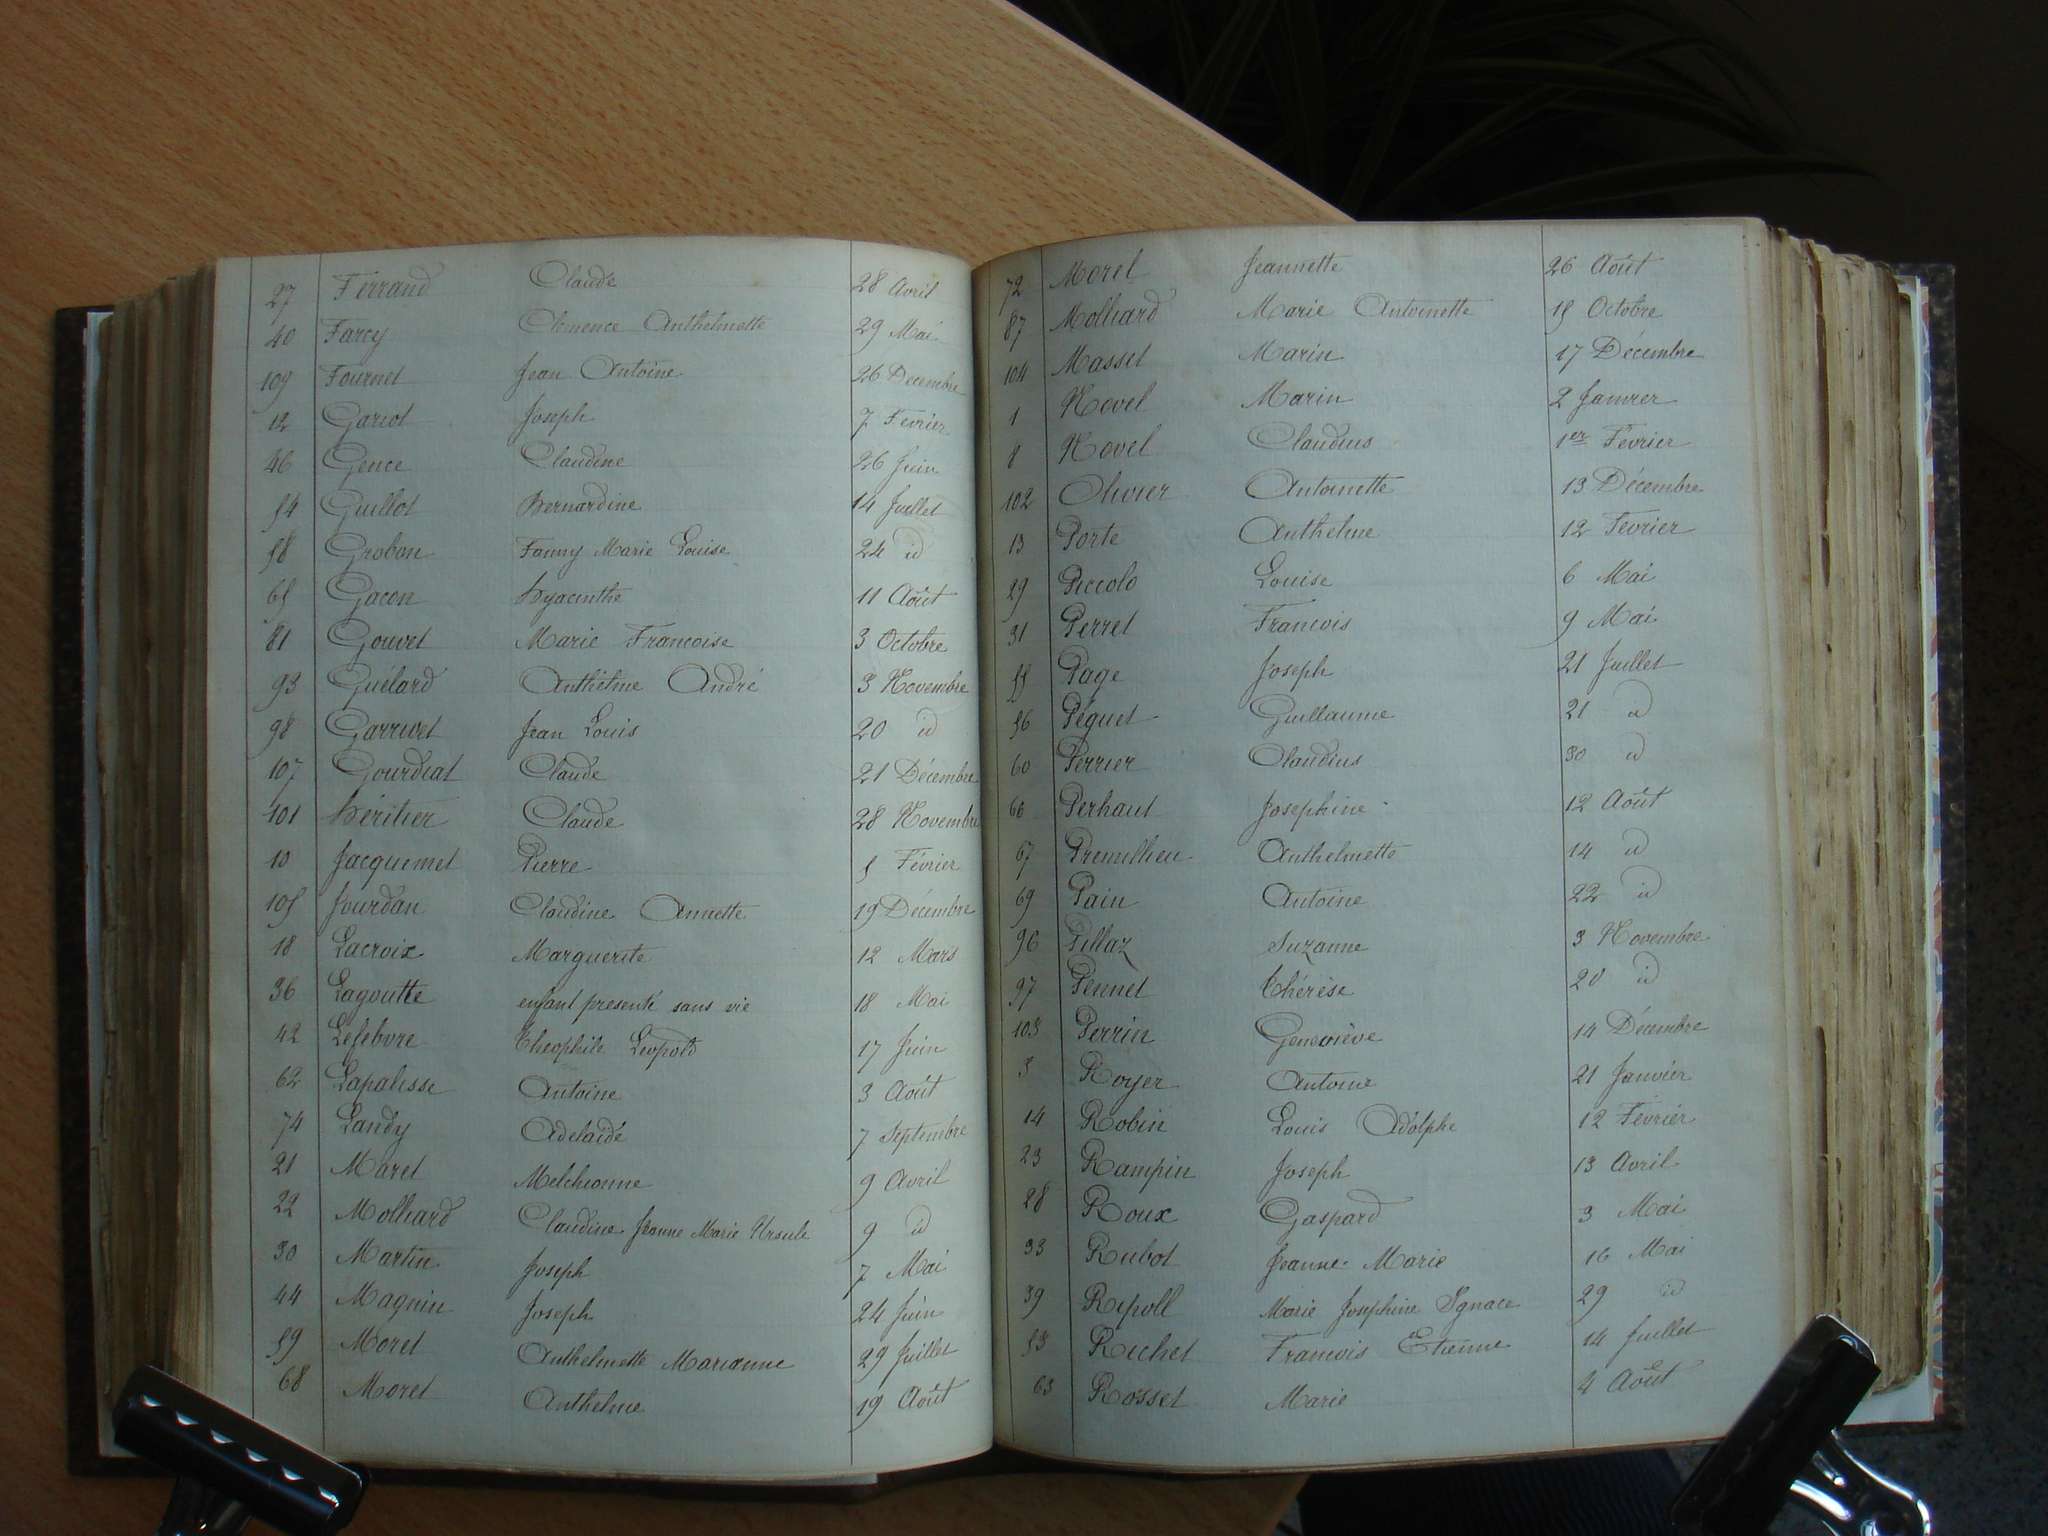 27 Ferrand Claude 28 Avril
40 Farcy Clémence Anthelmette 29 Mai
109 Fournet Jean Antoine 26 Décembre
12 Gariot Joseph 7 Février
46 Gence Claudine 26 Juin
54 Guillot Bernardine 14 Juillet
58 Grobon Fanny Marie Louise 24 id
65 Gacon Hyacinthe 11 Août
81 Gouvet Marie Francoise 3 Octobre
93 Guélard Anthelme André 3 Novembre
98 Garrivet Jean Louis 20 id
107 Gourdiat Claude 21 Décembre
101 Héritier Claude 28 Novembre
10 Jacquemet Pierre 5 Février
105 Jourdan Claudine Annette 19 Décembre
18 Lacroix Marguerite 12 Mars
36 Lagoutte enfant presenté sans vie 18 Mai
42 Lefebvre Théophile Léopold 17 Juin
62 Lapalisse Antoine 3 Août
74 Landy Adélaïde 7 Septembre
21 Maret Melchionne 9 Avril
22 Molliard Claudine Jeanne Marie Ursule 9 id
30 Martin Joseph 7 Mai
44 Magnin Joseph 24 Juin
59 Moret Anthelmette Marianne 29 Juillet
68 Moret Anthelme 19 Août
72 Moret Jeannette 26 Août
87 Molliard Marie Antoinette 15 Octobre
104 Masset Marin 17 Décembre
1 Novel Marin 2 Janvier
8 Novel Claudius 1er Février
102 Olivier Antoinette 13 Décembre
13 Porte Anthelme 12 Février
29 Piccolo Louise 6 Mai
31 Perret Francois 9 Mai
55 Page Joseph 21 Juillet
56 Péguet Guillaume 21 id
60 Perrier Claudius 30 id
66 Perhaut Joséphine 12 Août
67 Premillieu Anthelmette 14 id
69 Pain Antoine 22 id
96 Pillaz Suzanne 3 Novembre
97 Pennet Thérèse 20 id
103 Perrin Geneviève 14 Décembre
5 Royer Antoine 21 Janvier
14 Robin Louis Adolphe 12 Février
23 Rampin Joseph 13 Avril
28 Roux Gaspard 3 Mai
33 Rubot Jeanne Marie 16 Mai
39 Ripoll Marie Joséphine Ignace 29 id
53 Richet Francois Etienne 14 Juillet
63 Rosset Marie 4 Août